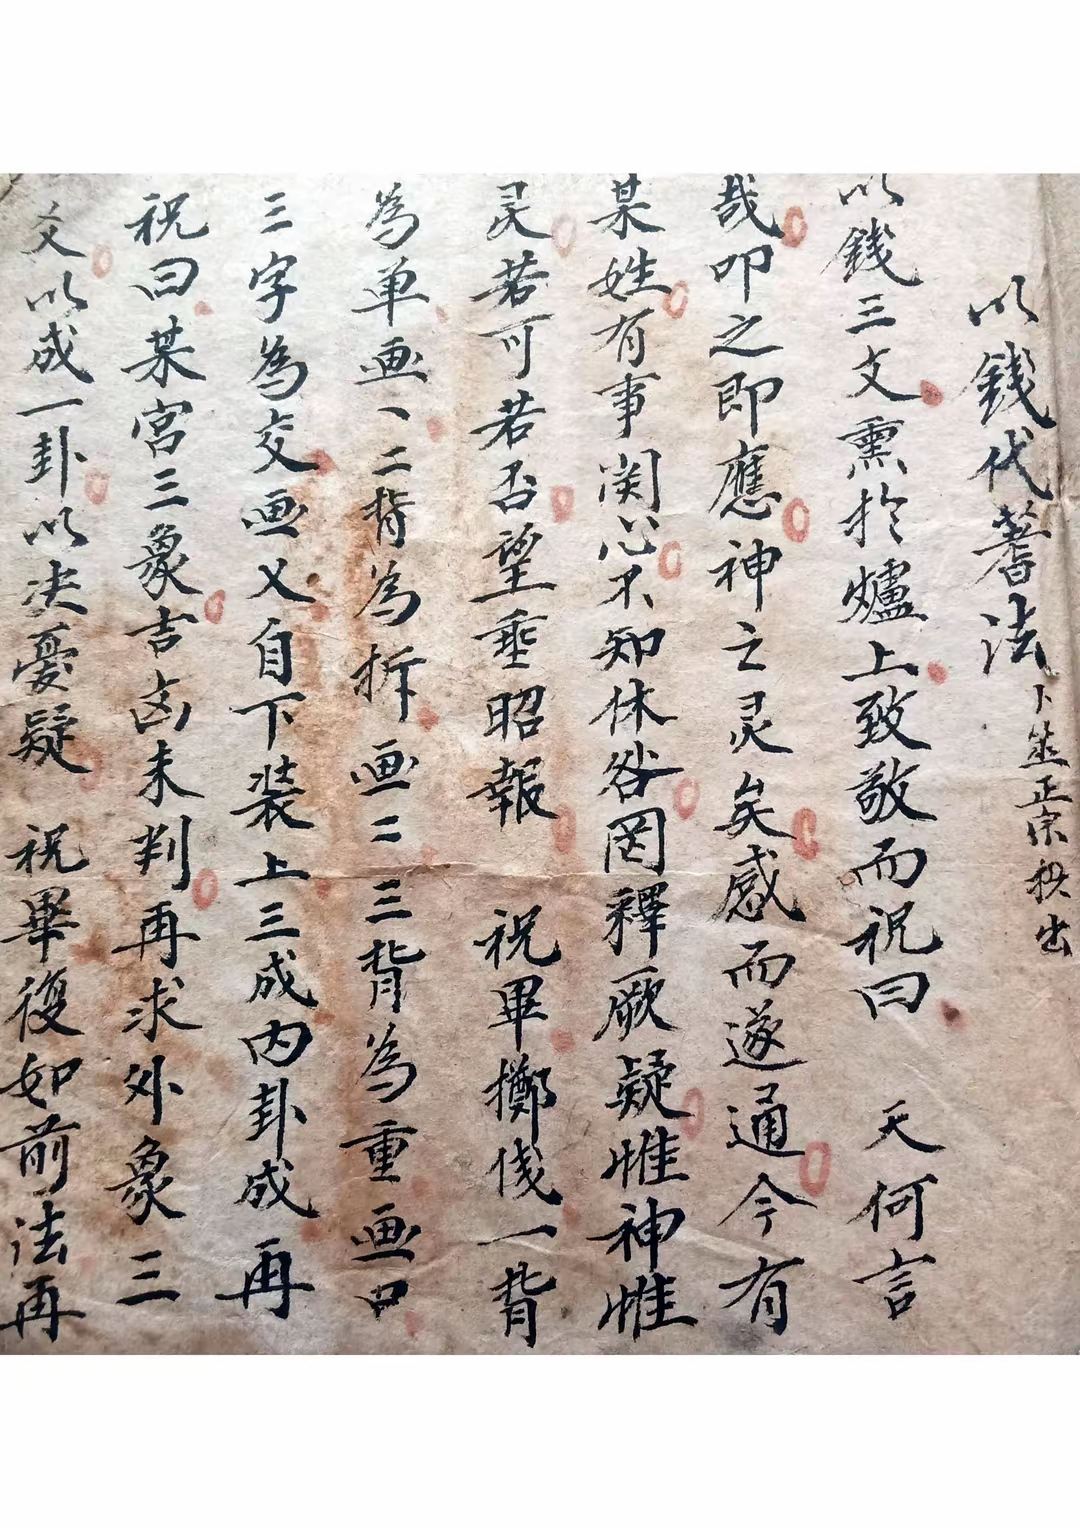 以錢代蓍法 卜筮正宗校出
以錢三文熏於爐上致敬而祝曰 天何言
哉叩之即應神之灵矣感而遂通今有
某姓有事関心不知休咎罔釋厥疑惟神惟
灵若可若否望垂昭報 祝畢擲伐一背
為单画丶二背為拆画二三背為重画口
三字為交画乂自下装上三成内卦成再
祝曰某宫三象吉凶未判再求外象三
爻以成一卦以决憂疑 祝畢復如前法再